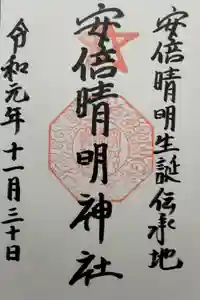 安倍晴明生誕伝承地
安倍晴明神社
令和元年十一月三十日